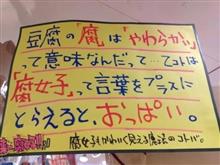 豆腐の「腐」は「やわらかい」
って意味なんだって…てコトは
「腐女子」って言葉をプラスに
とらえると、おっぱい。
腐女子もかわいく見える魔法のコトバ。